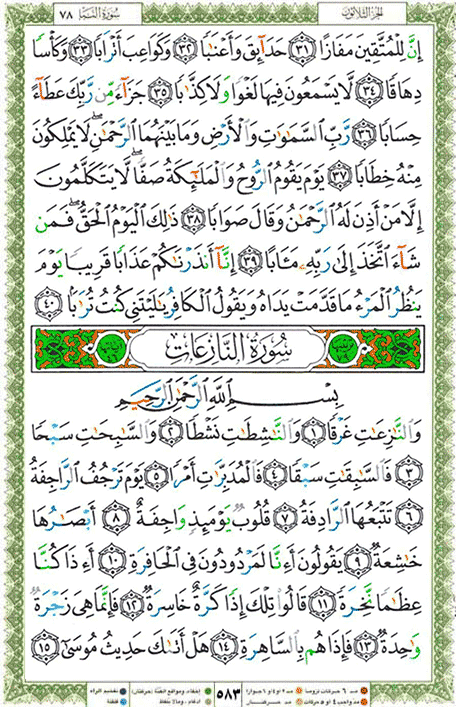 الجزء الثلاثون
سُورَةُ النَّبَإِ ٧٨
إِنَّ لِلْمُتَّقِينَ مَفَازًا ﴿٣١﴾ حَدَآئِقَ وَأَعْنَٰبًا ﴿٣٢﴾ وَكَوَاعِبَ أَتْرَابًا ﴿٣٣﴾ وَكَأْسًا
دِهَاقًا ﴿٣٤﴾ لَّا يَسْمَعُونَ فِيهَا لَغْوًا وَلَا كِذَّٰبًا ﴿٣٥﴾ جَزَآءً مِّن رَّبِّكَ عَطَآءً
حِسَابًا ﴿٣٦﴾ رَّبِّ ٱلسَّمَٰوَٰتِ وَٱلْأَرْضِ وَمَا بَيْنَهُمَا ٱلرَّحْمَٰنِ ۖ لَا يَمْلِكُونَ
مِنْهُ خِطَابًا ﴿٣٧﴾ يَوْمَ يَقُومُ ٱلرُّوحُ وَٱلْمَلَٰٓئِكَةُ صَفًّا ۖ لَّا يَتَكَلَّمُونَ
إِلَّا مَنْ أَذِنَ لَهُ ٱلرَّحْمَٰنُ وَقَالَ صَوَابًا ﴿٣٨﴾ ذَٰلِكَ ٱلْيَوْمُ ٱلْحَقُّ ۖ فَمَن
شَآءَ ٱتَّخَذَ إِلَىٰ رَبِّهِۦ مَـَٔابًا ﴿٣٩﴾ إِنَّآ أَنذَرْنَٰكُمْ عَذَابًا قَرِيبًا يَوْمَ
يَنظُرُ ٱلْمَرْءُ مَا قَدَّمَتْ يَدَاهُ وَيَقُولُ ٱلْكَافِرُ يَٰلَيْتَنِى كُنتُ تُرَٰبًۢا ﴿٤٠﴾
سُورَةُ النَّازِعَات
بِسْمِ ٱللَّهِ ٱلرَّحْمَٰنِ ٱلرَّحِيمِ
وَٱلنَّٰزِعَٰتِ غَرْقًا ﴿١﴾ وَٱلنَّٰشِطَٰتِ نَشْطًا ﴿٢﴾ وَٱلسَّٰبِحَٰتِ سَبْحًا
﴿٣﴾ فَٱلسَّٰبِقَٰتِ سَبْقًا ﴿٤﴾ فَٱلْمُدَبِّرَٰتِ أَمْرًا ﴿٥﴾ يَوْمَ تَرْجُفُ ٱلرَّاجِفَةُ
﴿٦﴾ تَتْبَعُهَا ٱلرَّادِفَةُ ﴿٧﴾ قُلُوبٌ يَوْمَئِذٍ وَاجِفَةٌ ﴿٨﴾ أَبْصَٰرُهَا
خَٰشِعَةٌ ﴿٩﴾ يَقُولُونَ أَءِنَّا لَمَرْدُودُونَ فِى ٱلْحَافِرَةِ ﴿١٠﴾ أَءِذَا كُنَّا
عِظَٰمًا نَّخِرَةً ﴿١١﴾ قَالُوا۟ تِلْكَ إِذًا كَرَّةٌ خَاسِرَةٌ ﴿١٢﴾ فَإِنَّمَا هِىَ زَجْرَةٌ
وَٰحِدَةٌ ﴿١٣﴾ فَإِذَا هُم بِٱلسَّاهِرَةِ ﴿١٤﴾ هَلْ أَتَىٰكَ حَدِيثُ مُوسَىٰٓ ﴿١٥﴾
٥٨٣